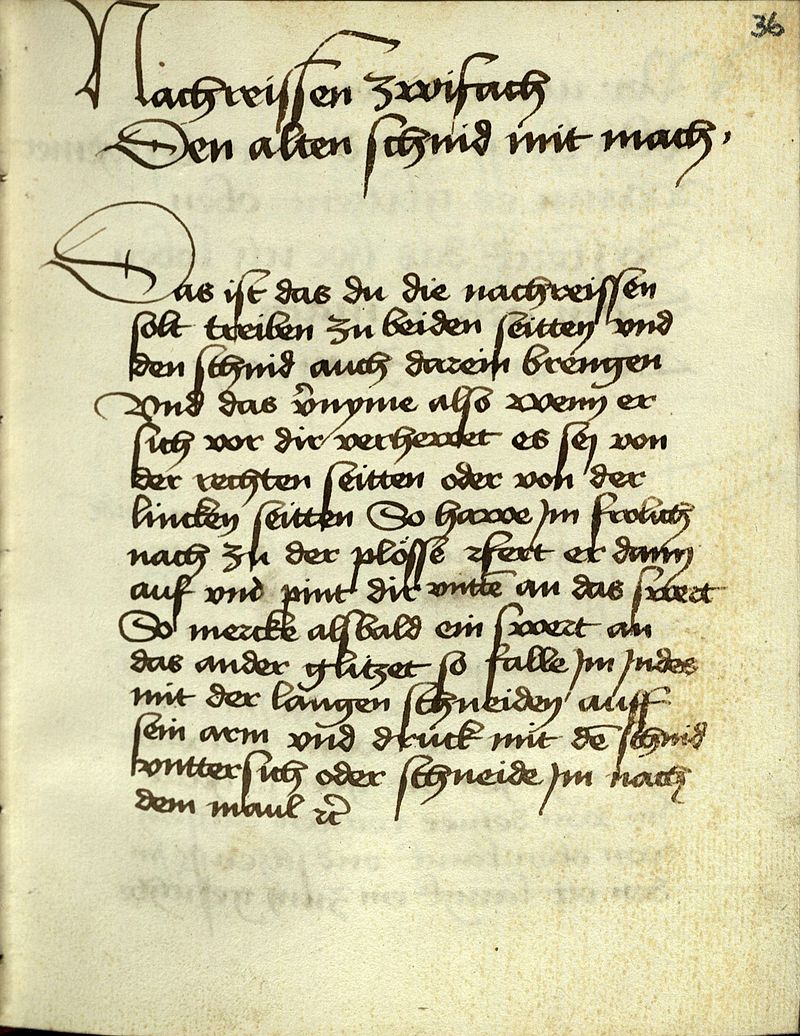 36
Nachreissen zwifach
Den alten schnid mit mach,
Das ist das du die nachreissen
solt treiben zu beiden seitten vnd
den schnid auch darein brengen
Vnd das v̉nyme also wenn er
sich vor dir verhewet es sey von
der rechten seitten oder von der
lincken seitten So hawe Jm frolich
nach zu der plösse ꝛfert er dann
auf vnd pint dir vnttē an das swert
So mercke alsbald ein swert an
das ander glitzet so falle Jm Jndes
mit der langen schneiden auff
sein arm vnd druck mit dē schnid
vnttersich oder schneide Jm nach
dem maul ꝛc̃